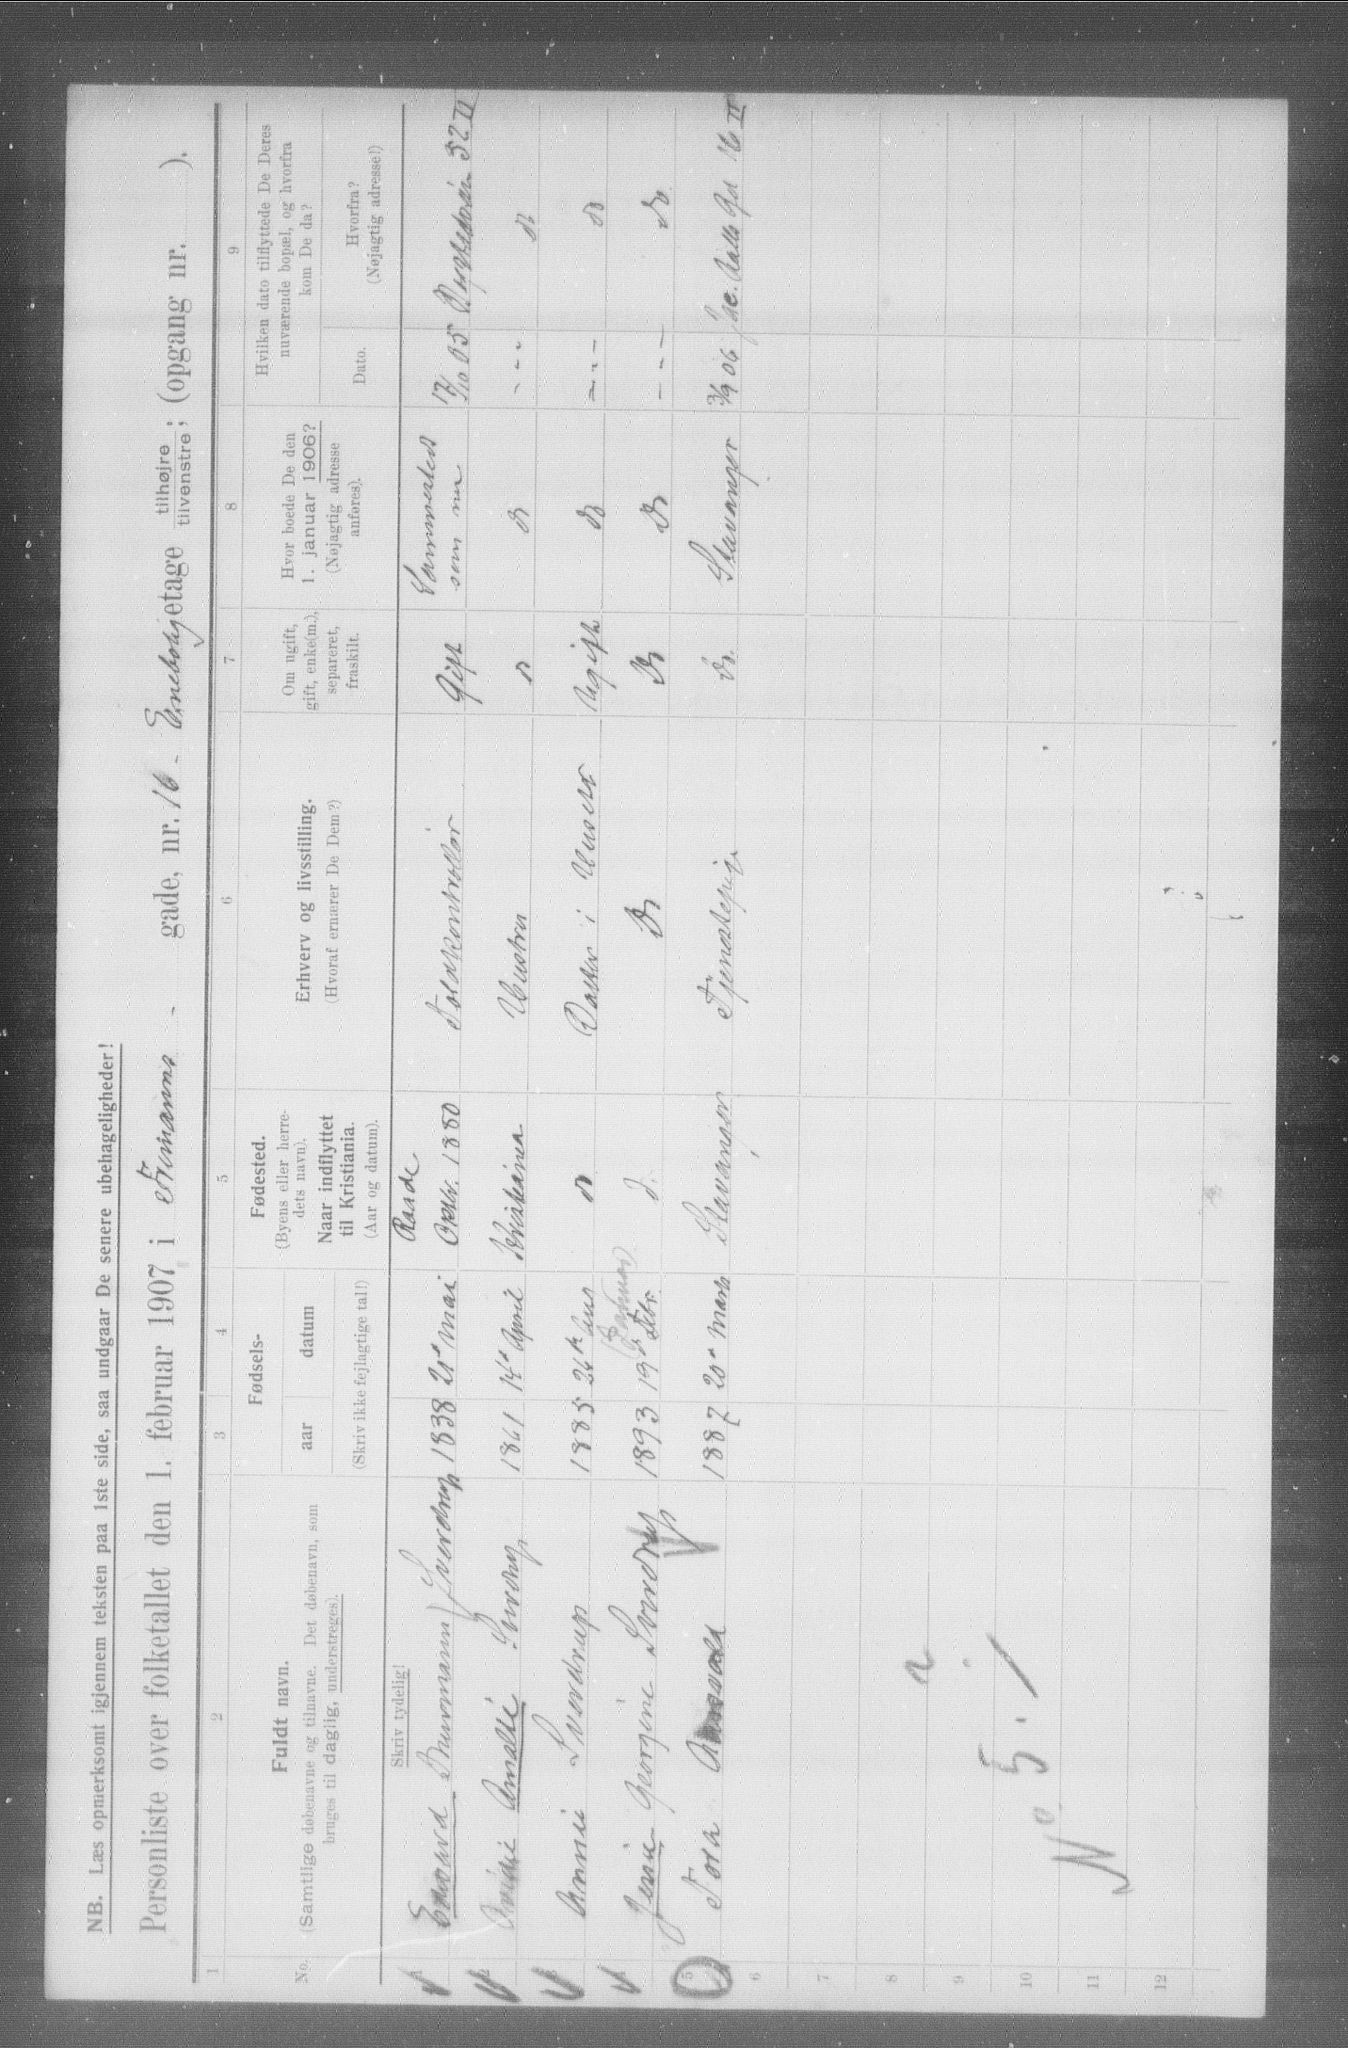 NB. Læs opmerksomt igjennem teksten paa 1ste side, saa undgaar De senere ubehageligheder!
Personliste over folketallet den 1. februar 1907 i Frimanns - gade, nr. 16 - Enebolig etage tilhøjre tilvenstre; (opgang nr. ).
1 2 3 4 5 6 7 8 9
No.
Fuldt navn.
(Samtlige døbenavne og tilnavne. Det døbenavn, som
bruges til daglig, understreges).
Fødsels-
aar datum
(Skriv ikke fejlagtige tal!)
Fødested.
(Byens eller herre-
dets navn).
Naar indflyttet
til Kristiania.
(Aar og datum).
Erhverv og livsstilling.
(Hvoraf ernærer De Dem?)
Om ugift,
gift, enke(m.),
separeret,
fraskilt.
Hvor boede De den
1. januar 1906?
(Nøjagtig adresse
anføres).
Hvilken dato tilflyttede De Deres
nuværende bopæl, og hvorfra
kom De da?
Dato.
Hvorfra?
(Nøjagtig adresse!)
Skriv tydelig!
1 Edvard Brunmann Sverdrup 1838 20de Mai Raade Oktbr. 1880 Toldkontrollør Gift Sammesteds som nu 17/10 05 52 II
2 Amalie Sverdrup 1861 14de April Kristiania Hustru do do - - - do
3 Annie Sverdrup 1885 26de Datter i Huset Ugift do - - - do
4 Jenie Georgine Sverdrup 1893 19de Febr. Januar d. Do Do Do - - - Do
5 Tora 1887 20de Marts Stavanger Tjenestepige Do. Stavanger 3/9 06 16 II
6
7
8
9
10
11
12
2
5 . /
No